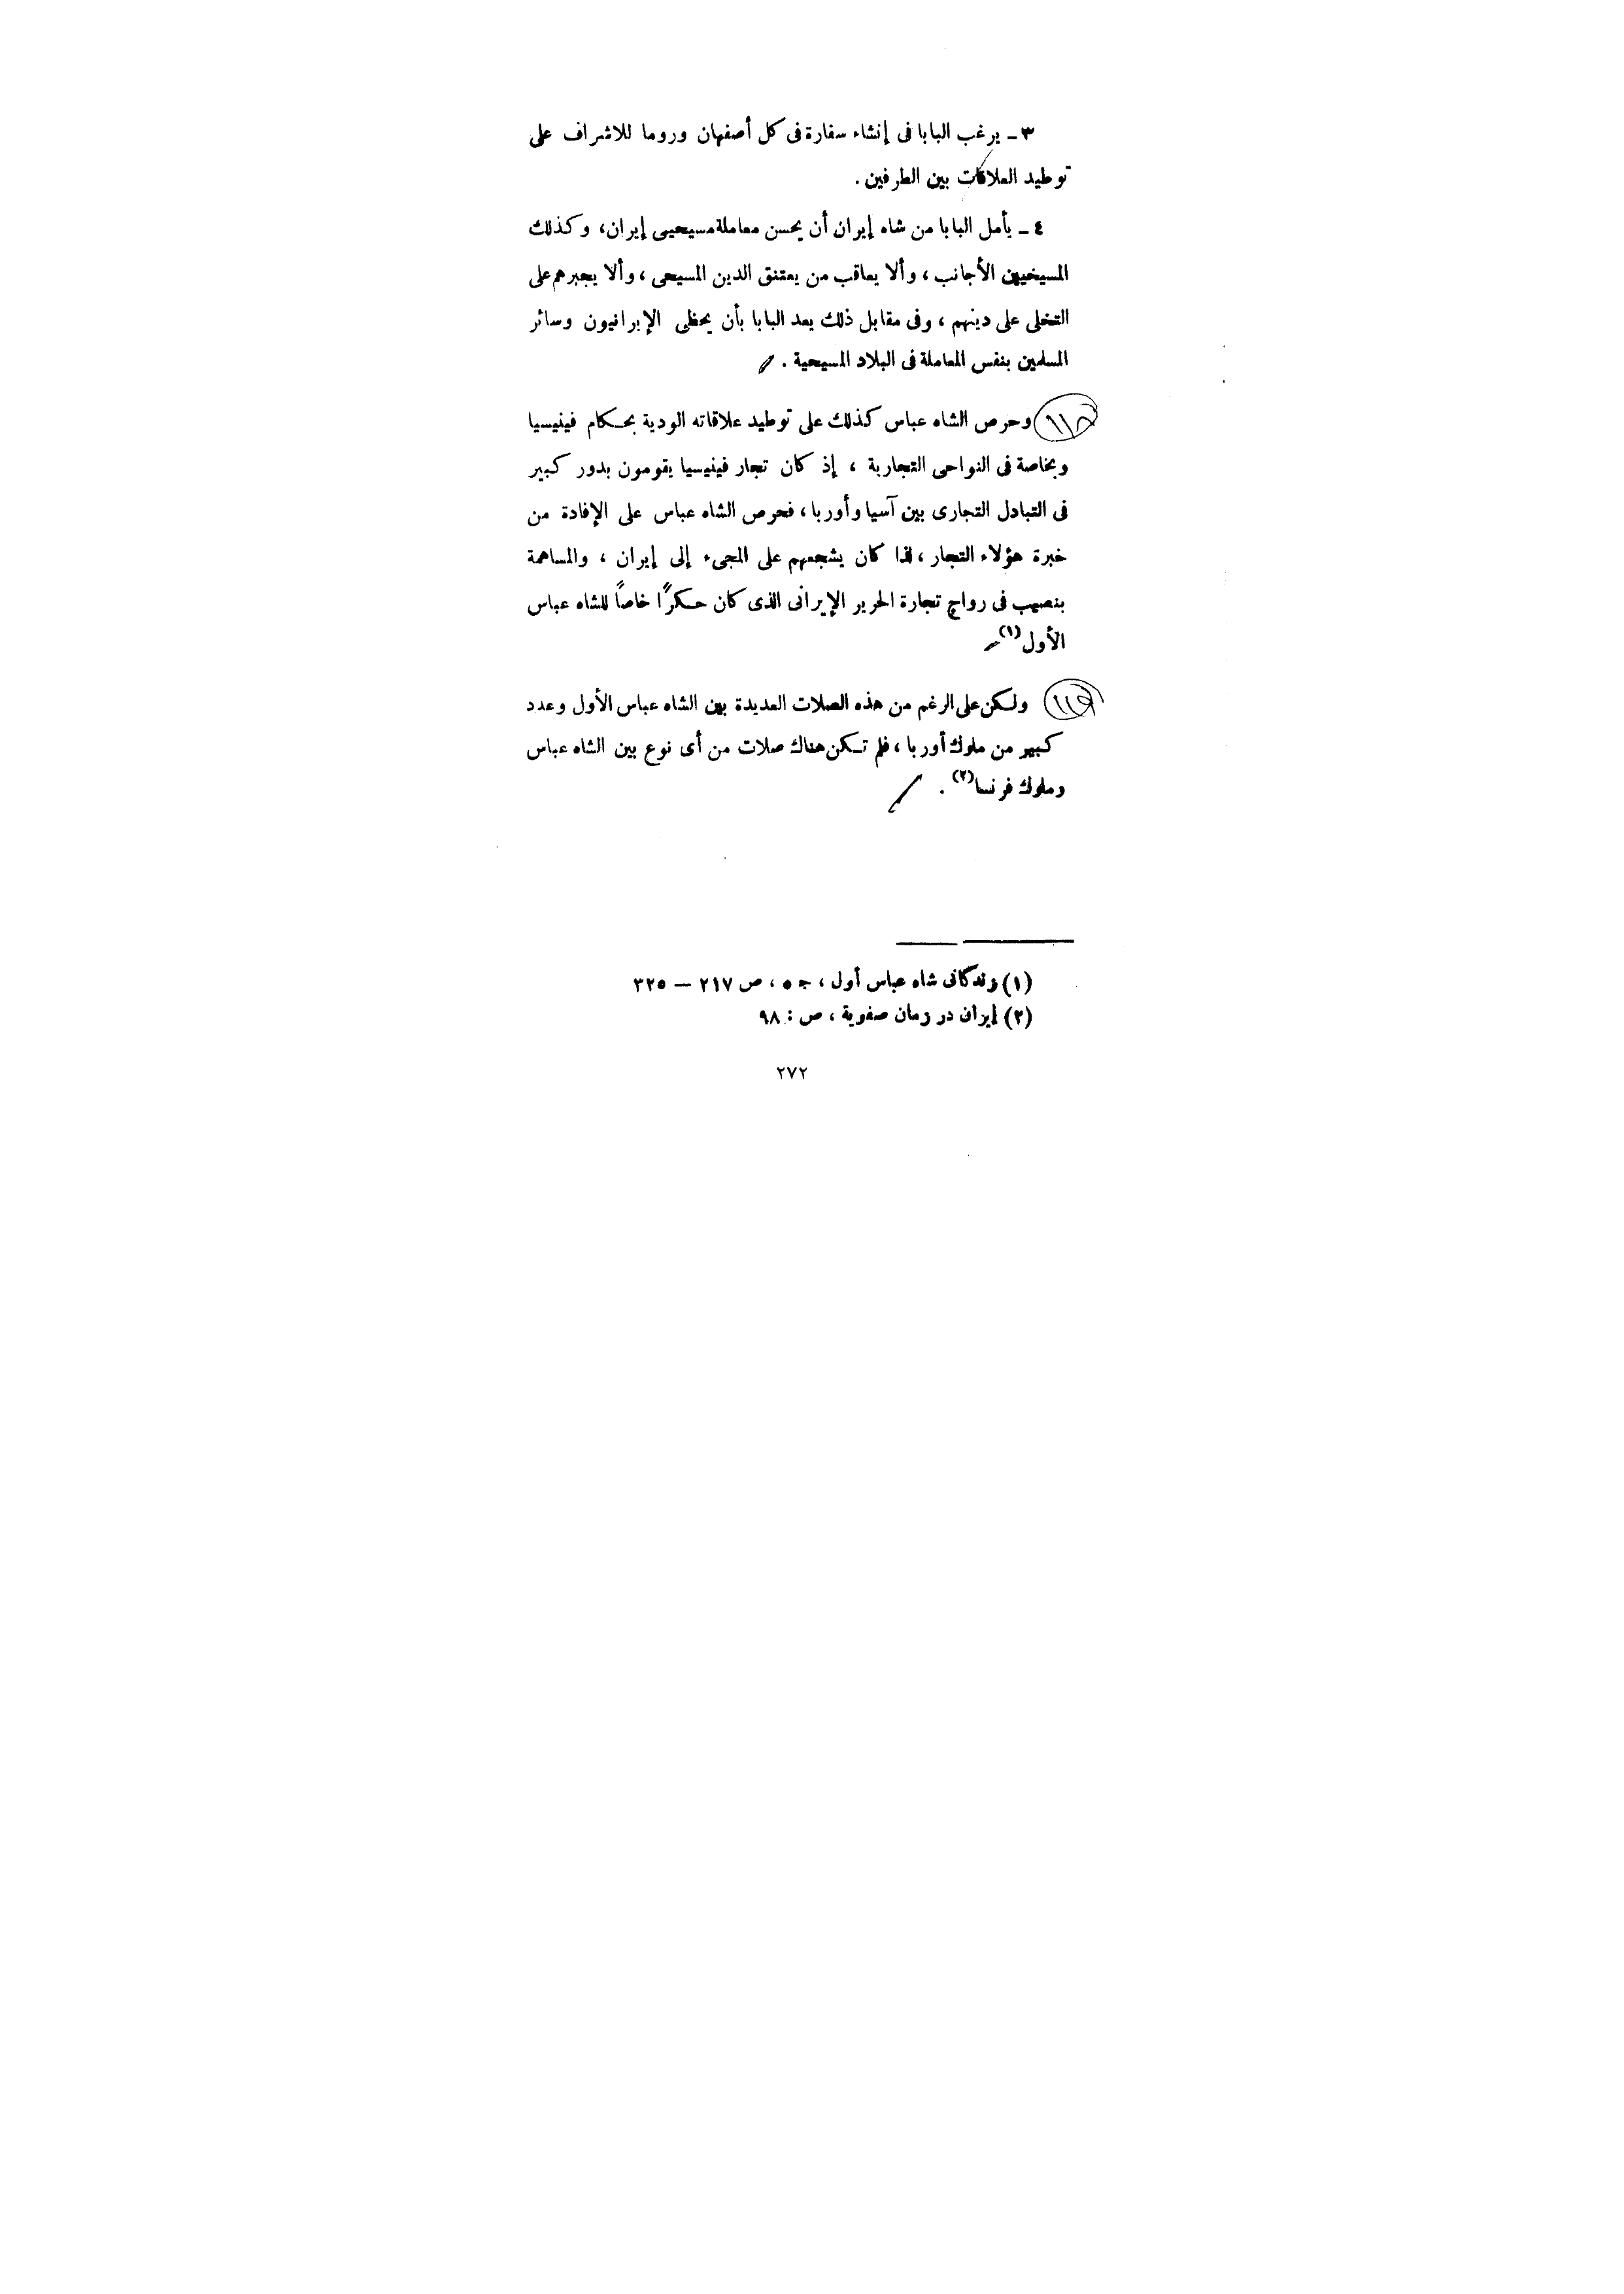 ٣ ـ يرغب البابا فى إنشاء سفارة فى كل أصفهان وروما للاشراف على
توطيد العلاقات بين الطرفين .
٤ ـ يأمل البابا من شاه إيران أن يحسن معاملة مسيحيى إيران، وكذلك
المسيحيين الأجانب ، وألا يعاقب من يعتنق الدين المسيحى ، وألا يجبرهم على
التخلى على دينهم ، وفى مقابل ذلك يعد البابا بأن يحظى الإيرانيون وسائر
المسلمين بنفس المعاملة فى البلاد المسيحية .
وحرص الشاه عباس كذلك على توطيد علاقاته الودية بحكام فينيسيا
وبخاصة فى النواحى التجارية ، إذ كان تجار فينيسيا يقومون بدور كبير
فى التبادل التجارى بين آسيا وأوربا ، فحرص الشاه عباس على الإفادة من
خبرة هؤلاء التجار ، لذا كان يشجعهم على المجىء إلى إيران ، والمساهمة
بنصيب فى رواج تجارة الحرير الإيرانى الذى كان حكرًا خاصًا للشاه عباس
الأول (١)
ولكن على الرغم من هذه الصلات العديدة بين الشاه عباس الأول وعدد
كبير من ملوك أوربا ، فلم تكن هناك صلات من أى نوع بين الشاه عباس
وملوك فرنسا (٢) .
(١) زندگانى شاه عباس أول ، جـ ٥ ، ص ٢١٧ — ٣٢٥
(٢) إيران در زمان صفوية ، ص : ٩٨
٢٧٢